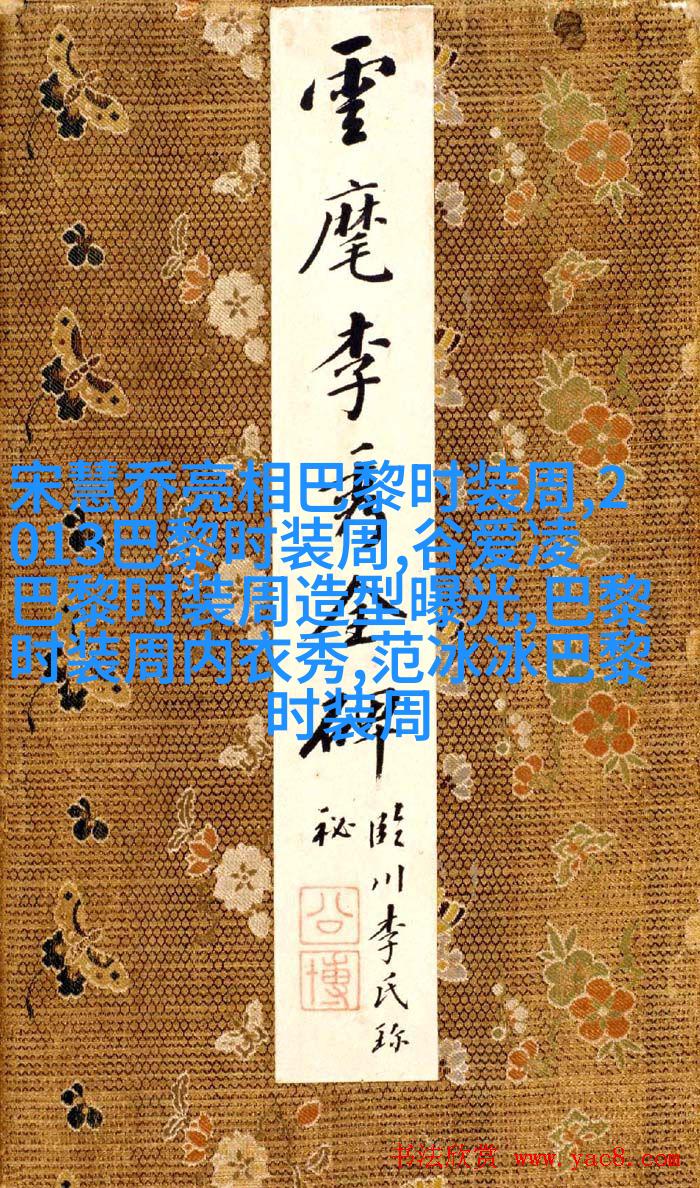 雲麾李秀碑
臨川李氏珎
秘
公博
宋慧乔亮相巴黎时装周,2
013巴黎时装周,谷爱凌
巴黎时装周造型曝光,巴黎
时装周内衣秀,范冰冰巴黎
时装周
书法欣赏 www.yac8.com